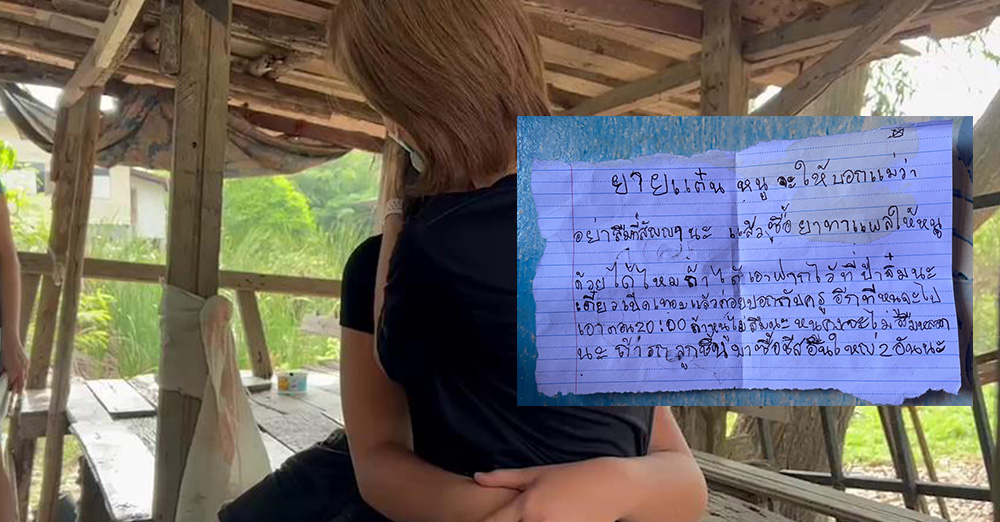 ยายแต๋น หนู จะให้บอกแม่ว่า
อย่าลืมที่สัญญานะ แล้วซื้อ ยาทาแผลให้หนู
ด้วยได้ไหม ถ้าได้เอาฝากไว้ที่ป้า นะ
เดี๋ยว แล้วค่อยบอกกับครู อีกทีหนูจะไป
เอาตอน 20:00 ถ้าหนูไม่ลืมนะ
นะ ถ้า ลูกชิ้น มาซื้อชีสอันใหญ่ 2 อันนะ